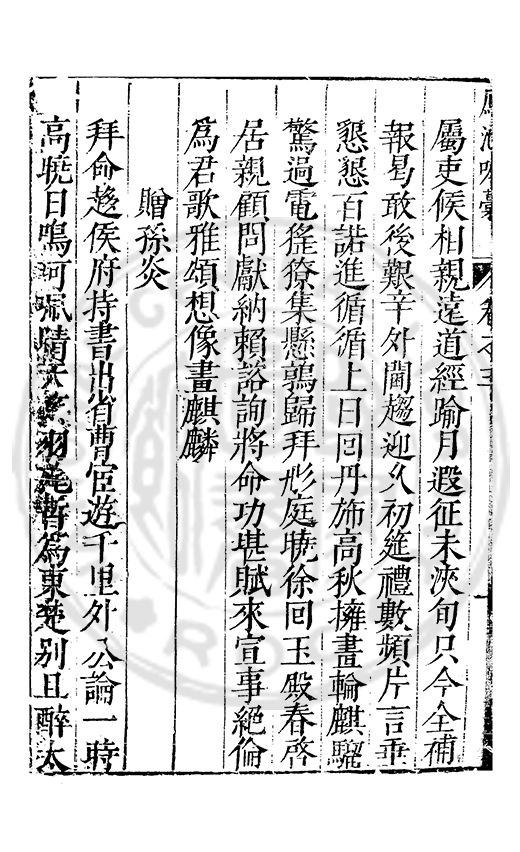 鳳池吟藁 卷之三
屬吏候相親遠道經踰月遐征未浹旬只今全補
報曷敢後艱辛外閫趨迎久初筵禮數頻片言垂
懇懇百諾進循循上日回丹旆高秋擁畫輪麒驎
驚過電猺獠集懸鶉歸拜彤庭曉徐回玉殿春啓
居親顧問獻納賴諮詢將命功堪賦來宣事絕倫
爲君歌雅頌想像畫麒麟
贈孫炎
拜命趍侯府持書出省曹宦遊千里外公論一時
高曉日鳴珂珮晴 羽旄暫爲東楚别且醉太